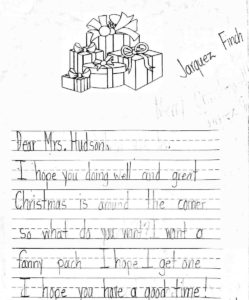 Jarquez Finch
Dear Mrs. Hudson,
I hope you doing well and great
Christmas is around the corner
so what do you want? I want a
fanny pach I hope I get one
I hope you have a good time!